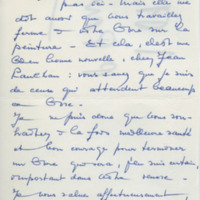 par ici - Mais elle me
dit aussi que vous travaillez
ferme à votre livre sur la
peinture. Et cela, c'est une
bien bonne nouvelle, cher Jean
Paulhan : vous savez que je suis
de ceux qui attendent beaucoup
de ce livre.
Je ne puis donc que vous sou-
haiter à la fois meilleure santé
et bon courage pour terminer
un livre qui sera, j'en suis certain,
important dans votre œuvre.
Je vous salue affectueusement,